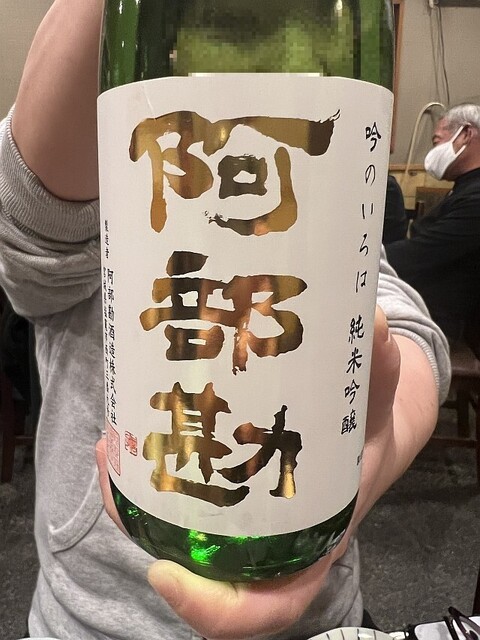 吟のいろは 純米吟醸
阿部勘
製造者 阿部勘酒造株式会社